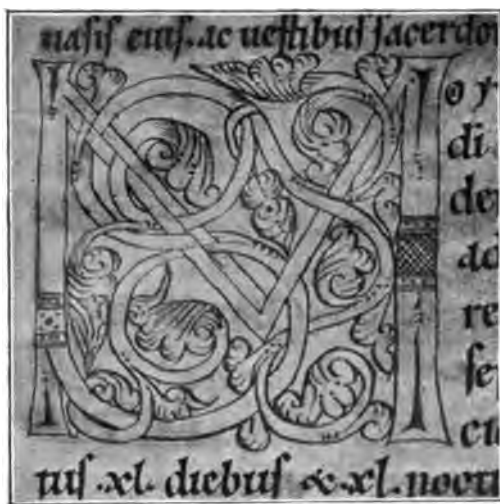 naſiſ eiuſ. ac ueſtibuſ ſacerdo
M oy
di
de
do
re
ſe
cu
tuſ .xl. diebuſ & .xl. noct